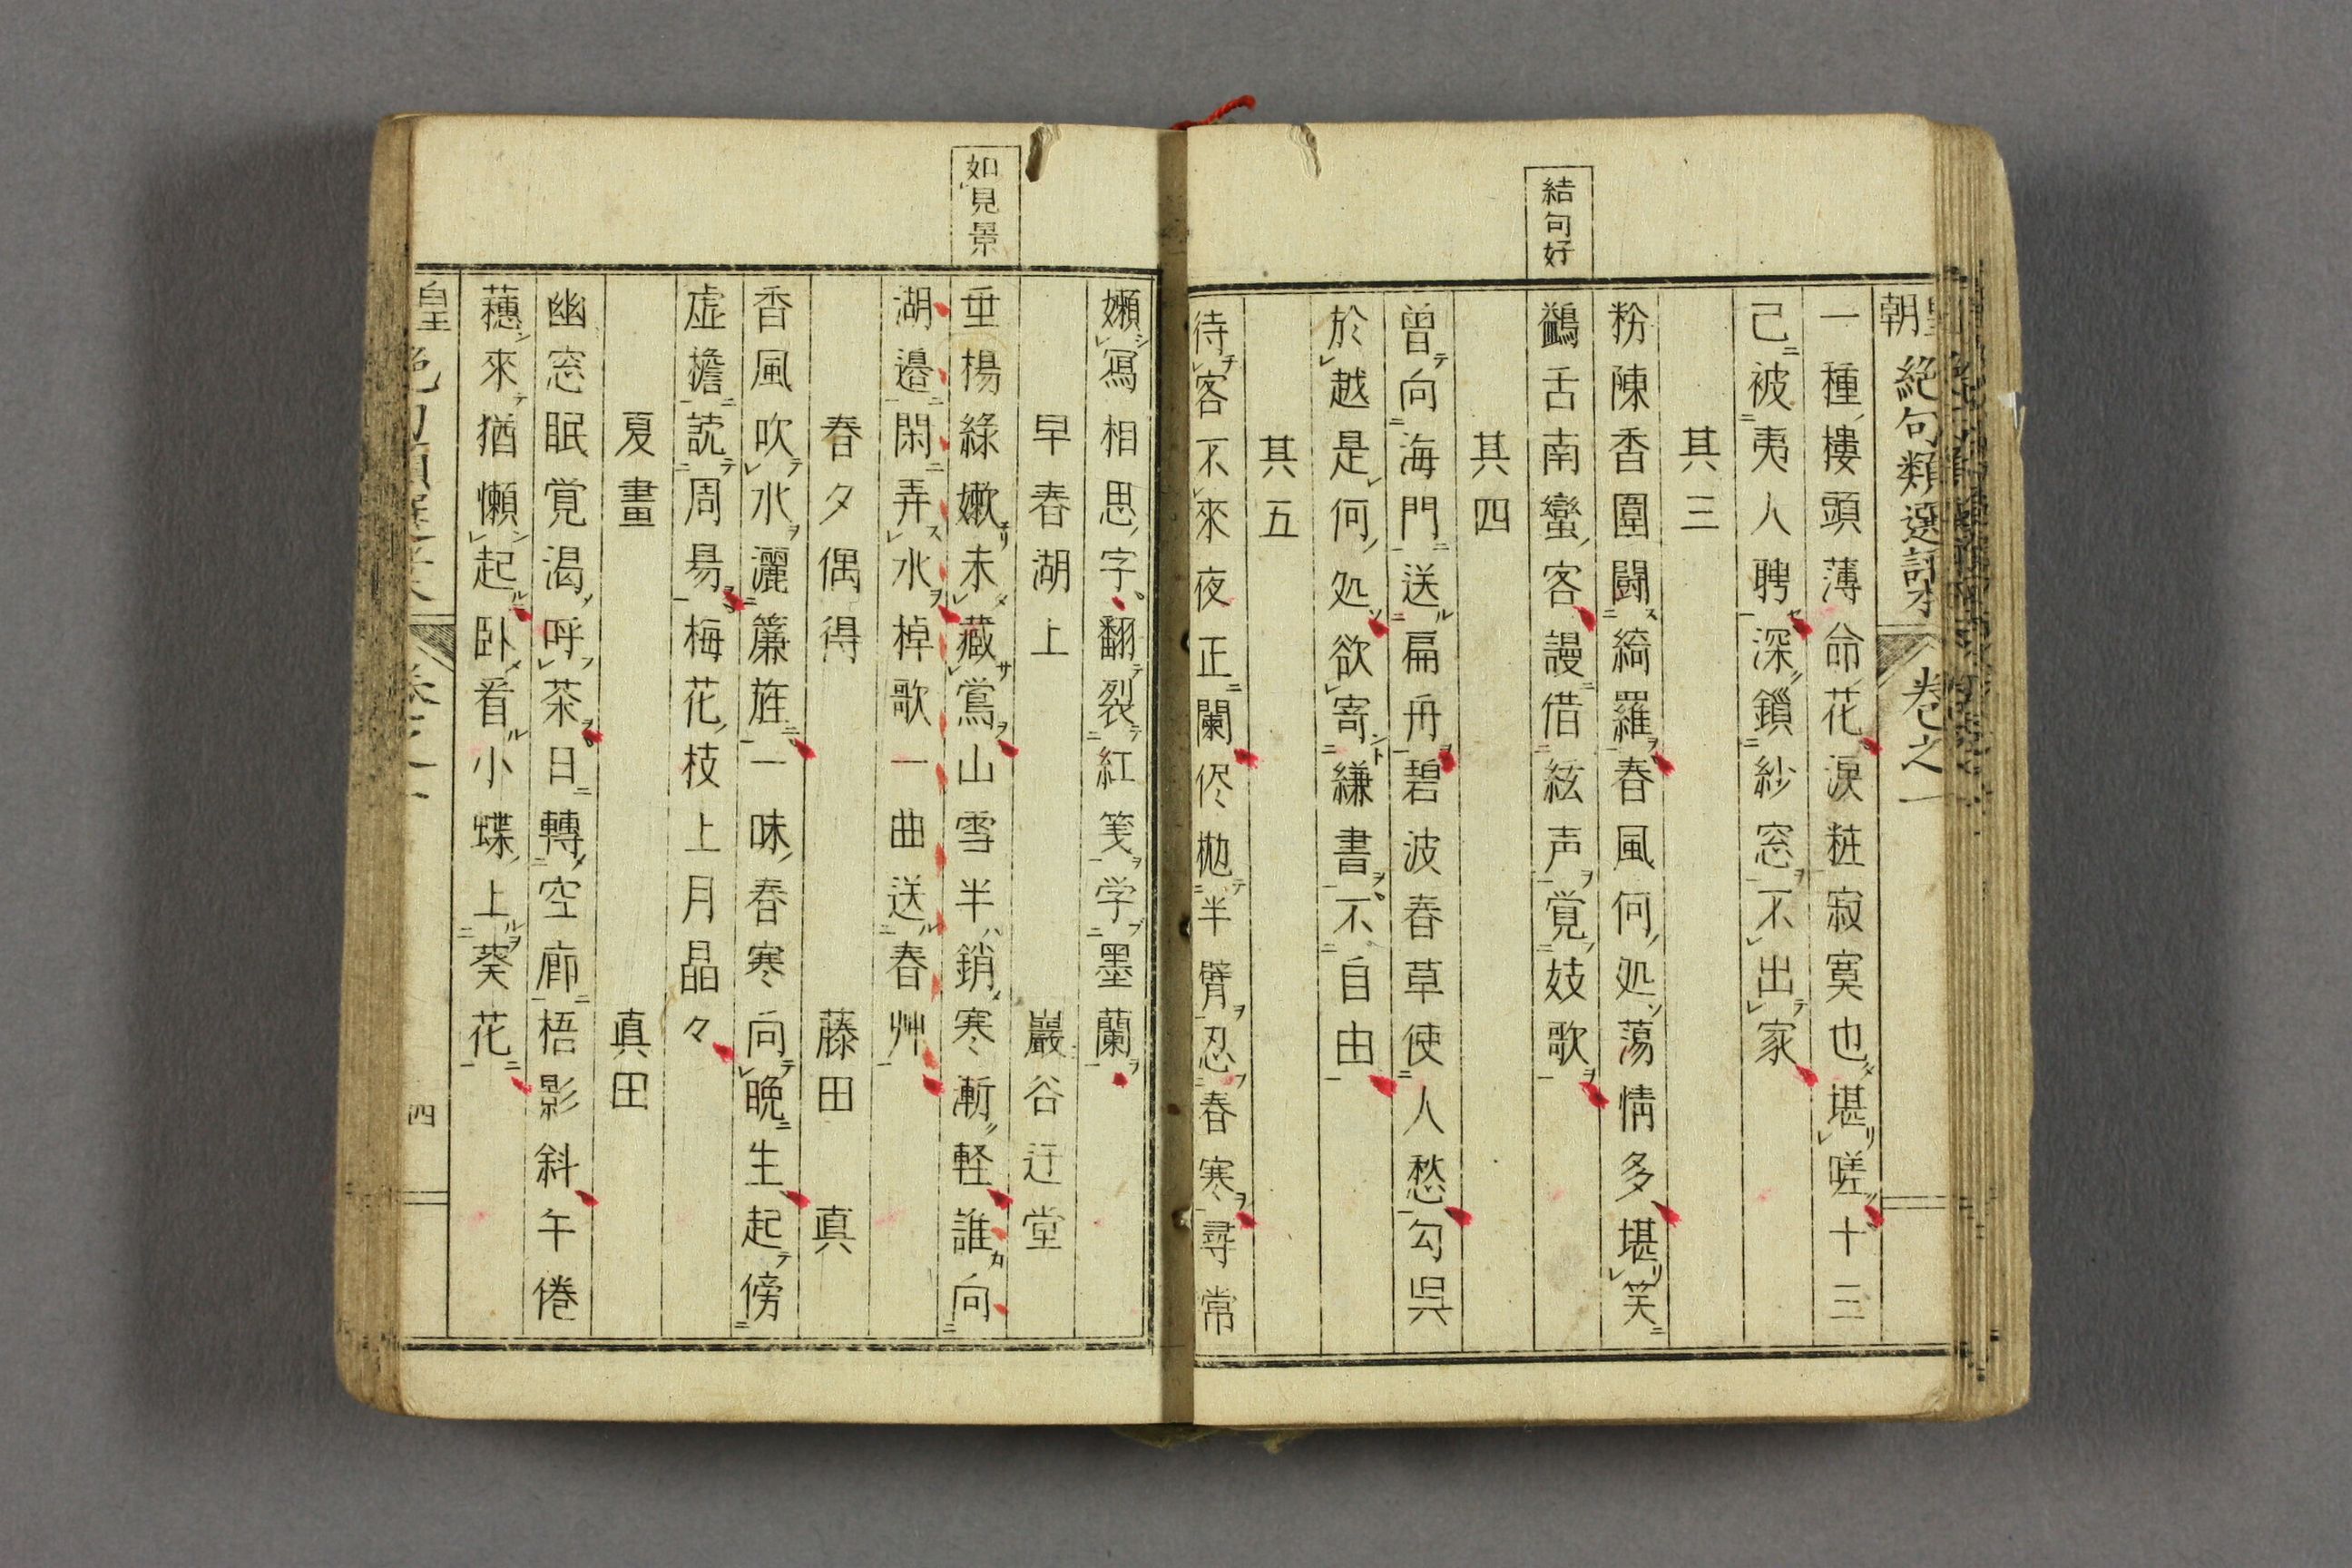 皇朝絕句類選評本 卷之一
一種樓頭薄命花淚粧寂寞也堪嗟十三
己被夷人聘深鎖紗窓不出家
其三
粉陳香圍闘綺羅春風何処蕩情多堪笑
結句好
鷁舌南蠻客謾借絃声覚妓歌
其四
曾向海門送扁舟碧波春草使人愁勾吳
於越是何処欲寄縑書不自由
其五
待客不來夜正闌侭拋半臂忍春寒尋常
嬾冩相思字翻裂紅箋学墨蘭
早春湖上 巖谷迂堂
如見景
垂楊綠嫩未藏鶯山雪半銷寒漸軽誰向
湖邉閑弄水棹歌一曲送春艸
春夕偶得 藤田 真
香風吹水灑簾旌一味春寒向晩生起傍
虚擔読周易梅花枝上月晶々
夏畫 真田
幽窓眠覚渇呼茶日轉空廊梧影斜午倦
蘓來猶懶起臥看小蝶上葵花
四